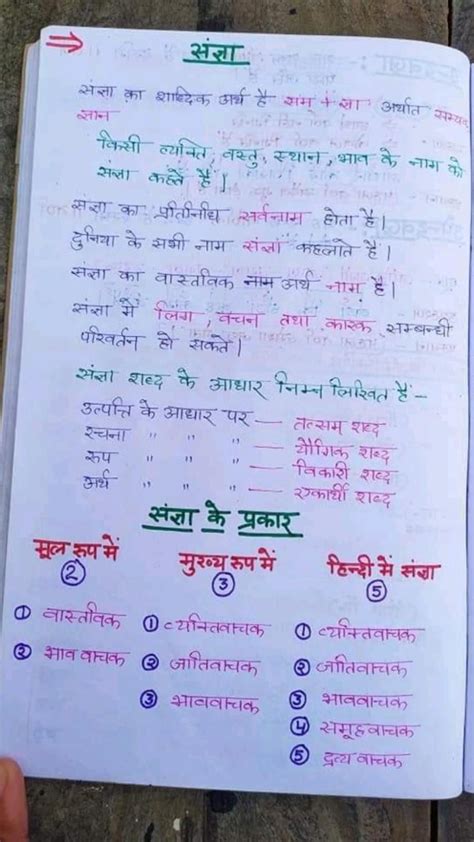 ⇒ संज्ञा
संज्ञा का शाब्दिक अर्थ है सम् + ज्ञा अर्थात सम्यक
ज्ञान
किसी व्यक्ति, वस्तु, स्थान, भाव के नाम को
संज्ञा कहते हैं।
संज्ञा का प्रीतीनीध सर्वनाम होता है।
दुनिया के सभी नाम संज्ञा कहलाते हैं।
संज्ञा का वास्तविक नाम अर्थ नाम है।
संज्ञा में लिंग, वचन तथा कारक सम्बन्धी
परिवर्तन हो सकते।
संज्ञा शब्द के आधार निम्न लिखित हैं –
उत्पत्ति के आधार पर — तत्सम् शब्द
रचना " " " — यौगिक शब्द
रुप " " " — विकारी शब्द
अर्थ " " " — एकार्थी शब्द
संज्ञा के प्रकार
मूल रुप में मुख्य रुप में हिन्दी में संज्ञा
② ③ ⑤
① वास्तविक ① व्यक्तिवाचक ① व्यक्तिवाचक
② भाव वाचक ② जातिवाचक ② जातिवाचक
③ भाववाचक ③ भाववाचक
④ समूहवाचक
⑤ द्रव्य वाचक